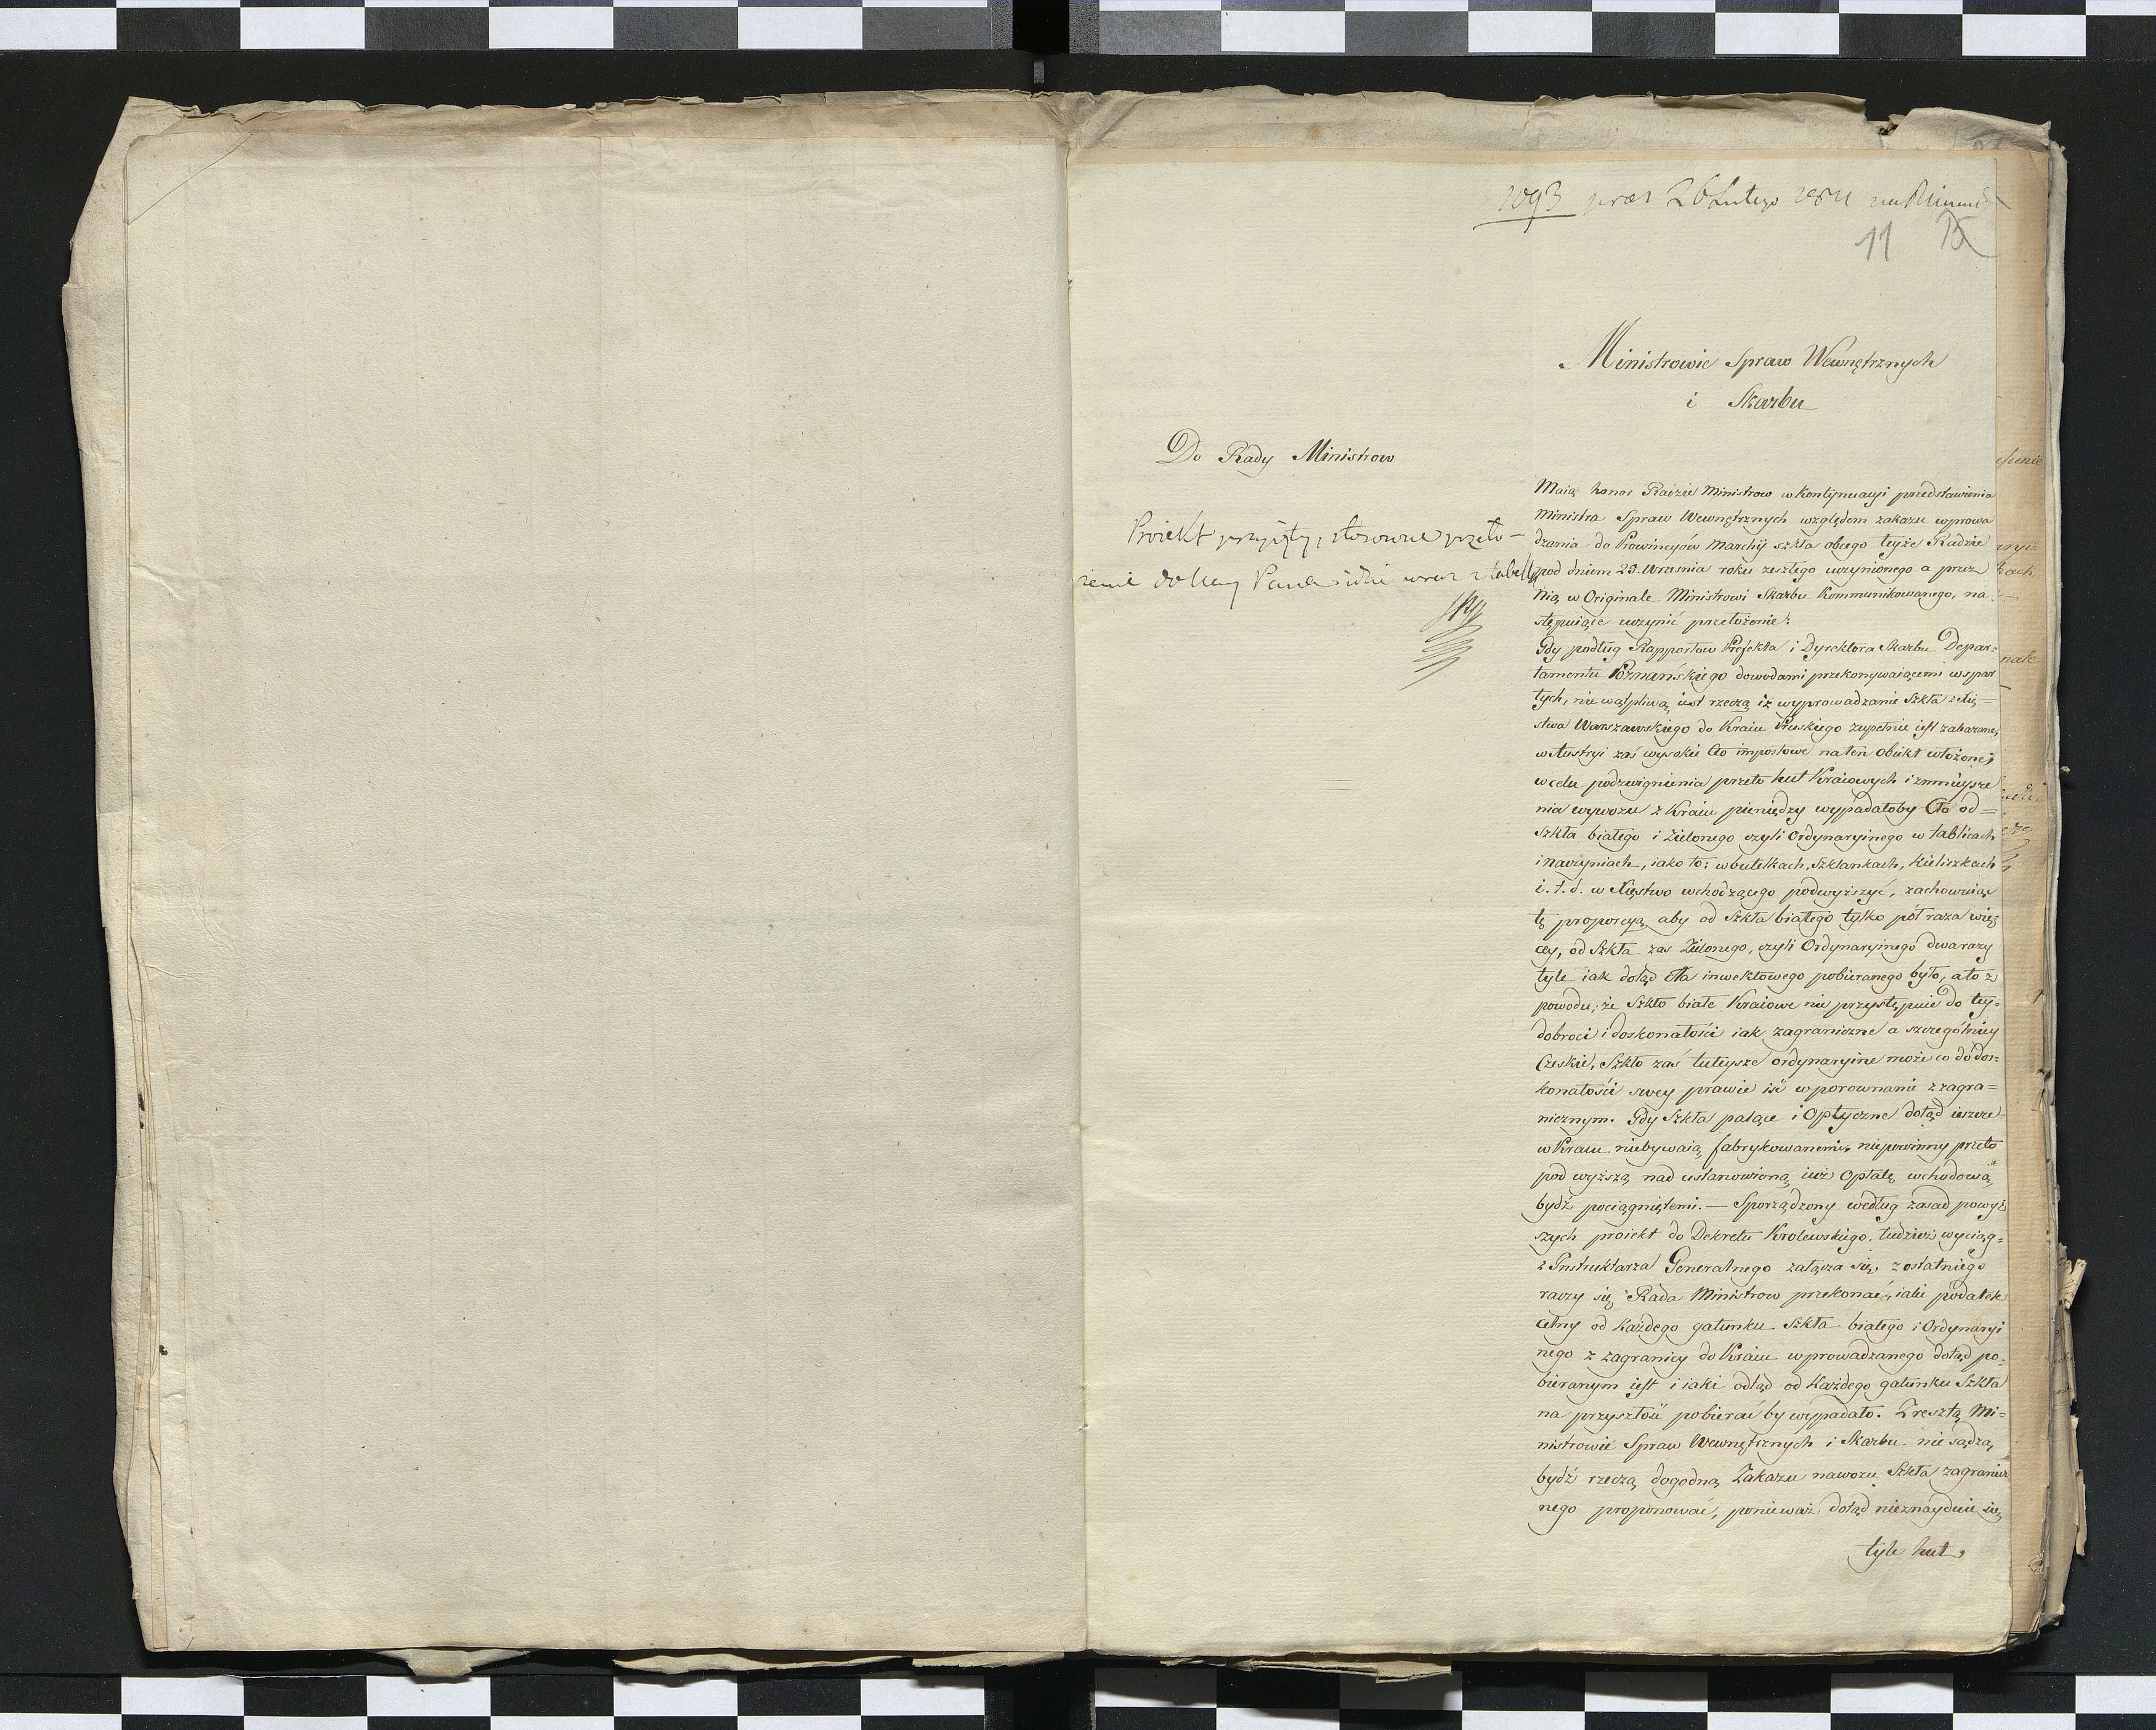 1093 26 Lutego
11
Ministrowie Spraw Wewnętrznych
i Skarbu
Do Rady Ministrow
Proiekt przyięty, stosowne przeło-
żenie do Krola Pana wraz z tabellą
Maią honor Radzie Ministrow w Kontynuacyi przedstawienia
Ministra Spraw Wewnętrznych względem zakazu wprowa
dzania do Prowincyów Marchij szkła obcego teyże Radzie
pod dniem 29. Września roku zeszłego uczynionego a przez
Nią w Originale Ministrowi Skarbu Kommunikowanego, na-
stępuiące uczynić przełożenie:
Gdy podług Rapportow Prefekta i Dyrektora Skarbu Depar=
tamentu Poznańskiego dowodami przekonywaiącemi wspar
tych, nie wątpliwą iest rzeczą iż wyprowadzanie Szkła z Xię=
stwa Warszawskiego do Kraiu Pruskiego zupełnie iest zakazane,
w Austryi zaś wysokie Cło impostowe na ten Obiekt włożone;
w celu podzwignienia przeto hut Kraiowych i zmnieysze
nia wywozu z Kraiu pieniędzy wypadałoby Cło od=
Szkła białego i Zielonego czyli Ordynaryinego w tablicach
i naczyniach, iako to: w butelkach, Szklankach, Kieliszkach
i.t.d. w Xięstwo wchodzącego podwyższyć, zachowuiąc
tę proporcyą aby od Szkła białego tylko pół raza wię
cey, od Szkła zas Zielonego, czyli Ordynaryinego dwa razy
tyle iak dotąd cła inwektowego pobieranego było, a to z
powodu; że Szkło białe Kraiowe nie przystępuie do tey=
dobroci i doskonałości iak zagraniczne a szczególniey
Czeskie, Szkło zaś tuteysze ordynaryine może co do dos=
konałości swey prawie iść w porownanie z zagra=
nicznym. Gdy Szkła palące i Optyczne dotąd ieszcze
w Kraiu niebywaią fabrykowanemi, niepowinny przeto
pod wyższą nad ustanowioną iuż Opłatę wchodową
bydź pociągniętemi. — Sporządzony według zasad powyż
szych proiekt do Dekretu Krolewskiego, tudzież wyciąg=
z Instruktarza Generalnego załącza się, z ostatniego
raczy się Rada Ministrow przekonać, iaki podatek
celny od Każdego gatunku Szkła białego i Ordynaryi
nego z zagranicy do Kraiu wprowadzanego dotąd po=
bieranym iest i iaki odtąd od Każdego gatunku Szkła
na przyszłość pobierać by wypadało. Zresztą Mi=
nistrowie Spraw Wewnętrznych i Skarbu nie sądzą,
bydź rzeczą dogodną Zakazu nawozu Szkła zagranicz
nego proponować, ponieważ dotąd nieznayduie się
tyle hut,